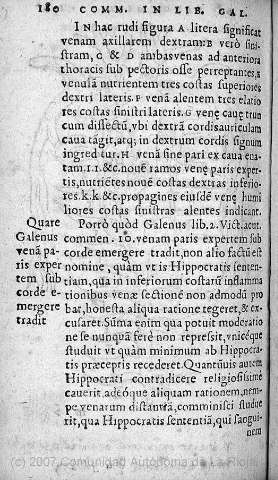 180 COMM. IN LIB. GAL.
IN hac rudi figura A litera significat
venam axillarem dextram: B verò sini-
stram, C & D ambas venas ad anteriora
thoracis sub pectoris osse perreptantes, E
venulã nutrientem tres costas superiores
dextri lateris. F venã alentem tres elatio
res costas sinistri lateris. G venę cauę trun
cum dissectũ, vbi dextrã cordis auriculam
caua tãgit, atq; in dextrum cordis signum
ingred cur. H venã sine pari ex caua ena-
tam. I I. &c. noué ramos venę paris exper-
tis, nutriétes noué costas dextras inferio-
res. k. k. &c. propagines eiusdẽ venę humi
liores costas sinistras alentes indicant.
Porrò quòd Galenus lib. 2. Vict. acut.
commen. 10. venam paris expertem sub
corde emergere tradit, non alio factũ est
nomine, quàm vt is Hippocratis senten-
tiam, qua in inferiorum costarũ inflamma
tionibus venæ sectionẽ non admodũ pro
bat, honesta aliqua ratione tegeret, & ex-
cusaret. Sũma enim qua potuit moderatio
ne se nunquã ferè non repressit, vnicéque
studuit vt quàm minimum ab Hippocra-
tis præceptis recederet. Quantũuis autem
Hippocrati contradicere religiosissimè
cauerit, adeóque aliquam rationem, nem-
pe venarum distantiã, comminisci studue
rit, qua Hippocratis sententiã, qui sangui-
nem
Quare
Galenus
venã pa-
ris exper
tem sub
corde e-
mergere
tradit
(c) 2007 Comunidad Autónoma de La Rioja